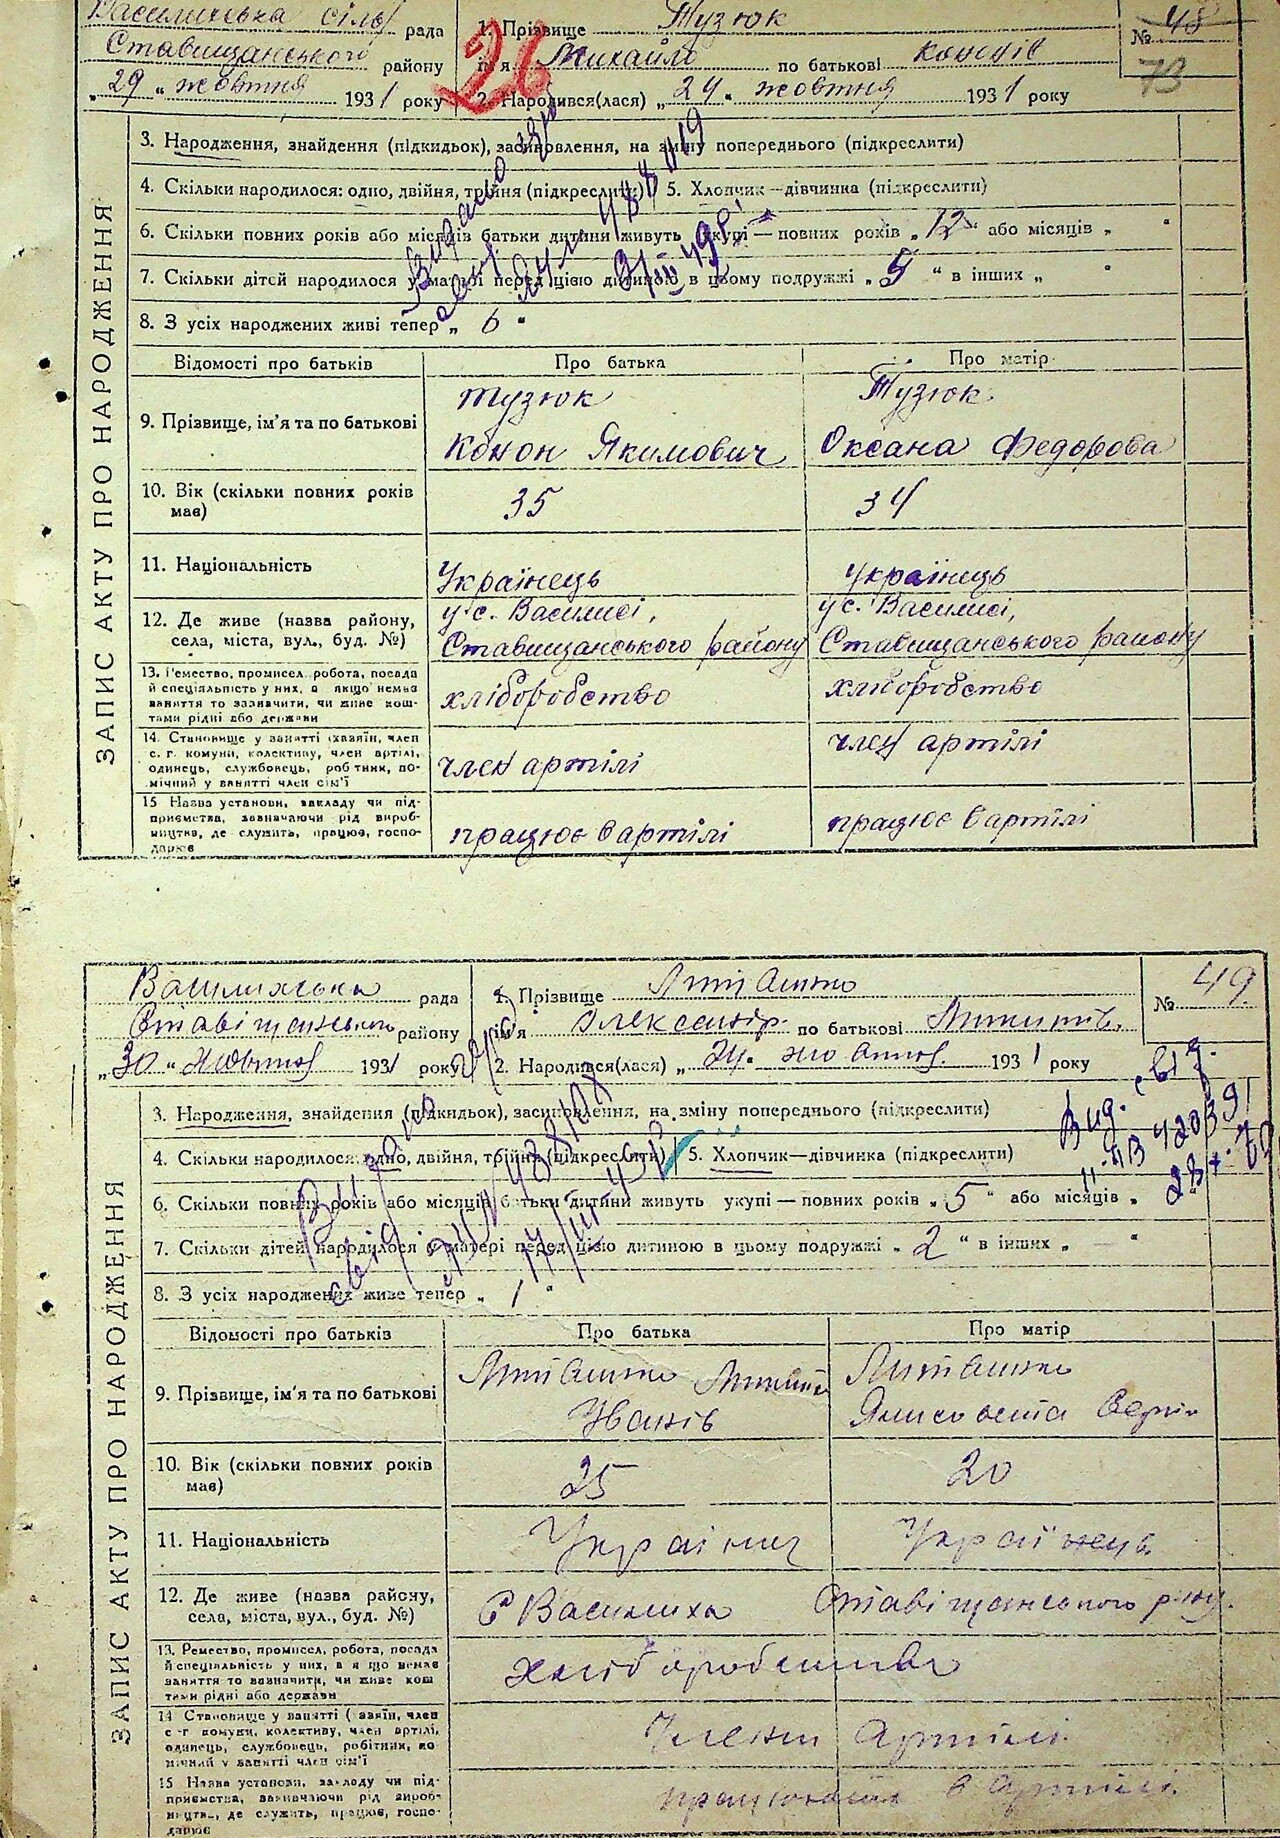 Василиська сіль рада
Ставищанського району
„ 29 “ жовтня 1931 року
26
1. Прізвище Тузюк
ім'я Михайло по батькові кононів
2. Народився(лася) „ 24 “ жовтня 1931 року
№ 48
73
ЗАПИС АКТУ ПРО НАРОДЖЕННЯ
3. Народження, знайдення (підкидьок), засиновлення, на зміну попереднього (підкреслити)
4. Скільки народилося: одно, двійня, трійня (підкреслить) 5. Хлопчик—дівчинка (підкреслити)
6. Скільки повних років або місяців батьки дитини живуть укупі — повних років „ 12 “ або місяців „ “
7. Скільки дітей народилося у матері перед цією дитиною в цьому подружжі „ 5 “ в інших „ “
8. З усіх народжених живі тепер „ 6 “
Відомості про батьків Про батька Про матір
9. Прізвище, ім'я та по батькові
Тузюк
Конон Якимович
Тузюк
Оксана Федорова
10. Вік (скільки повних років має) 35 34
11. Національність Українець українець
12. Де живе (назва району, села, міста, вул., буд. №)
у с. Василисі,
Ставищанського району
у с. Василисі,
Ставищанського району
13. Ремество, промисел, робота, посада
й спеціяльність у них, а якщо немає
заняття то зазначити, чи живе кош-
тами рідні або держави
хліборобство хліборобство
14. Становище у занятті (хазяїн, член
с. г. комуни, колективу, член артілі,
одинець, службовець, робітник, по-
мічний у занятті член сім'ї
член артілі член артілі
15 Назва установи, закладу чи під-
приємства, зазначаючи рід вироб-
ництва, де служить, працює, госпо-
дарює
працює в артілі працює в артілі
Василиська рада
Ставіщанського району
„ 30 “ жовтня 1931 року
1. Прізвище
ім'я Олександр по батькові Микитів.
2. Народився(лася) „ 24 “ жовтня. 1931 року
№ 49.
ЗАПИС АКТУ ПРО НАРОДЖЕННЯ
3. Народження, знайдення (підкидьок), засиновлення, на зміну попереднього (підкреслити)
4. Скільки народилося: одно, двійня, трійня (підкреслити) 5. Хлопчик—дівчинка (підкреслити)
6. Скільки повних років або місяців батьки дитини живуть укупі — повних років „ 5 “ або місяців „ “
7. Скільки дітей народилося у матері перед цією дитиною в цьому подружжі „ 2 “ в інших „ — “
8. З усіх народжених живе тепер „ 1 “
Вид. свід.
Відомості про батьків Про батька Про матір
9. Прізвище, ім'я та по батькові
Микита
Іванів
10. Вік (скільки повних років має) 25 20
11. Національність Українец Українець
12. Де живе (назва району, села, міста, вул., буд. №)
с Василиха Ставіщанського р-ну.
13. Ремество, промисел, робота, посада
й спеціяльність у них, а якщо немає
заняття то зазначити, чи живе кош
тами рідні або держави
хліборобство
14 Становище у занятті (хазяїн, член
с-г комуни, колективу, член артілі,
одинець, службовець, робітник, по
мічний у занятті член сім'ї
Члени Артілі.
15 Назва установи, закладу чи під-
приємства, зазначаючи рід вироб-
ництва, де служить, працює, госпо-
дарює
в Артілі.